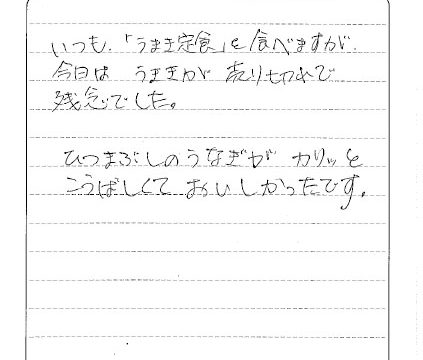 いつも、「うまき定食」を食べますが、
今日は うまきが 売り切れで
残念でした。
ひつまぶしのうなぎが カリッと
こうばしくて おいしかったです。